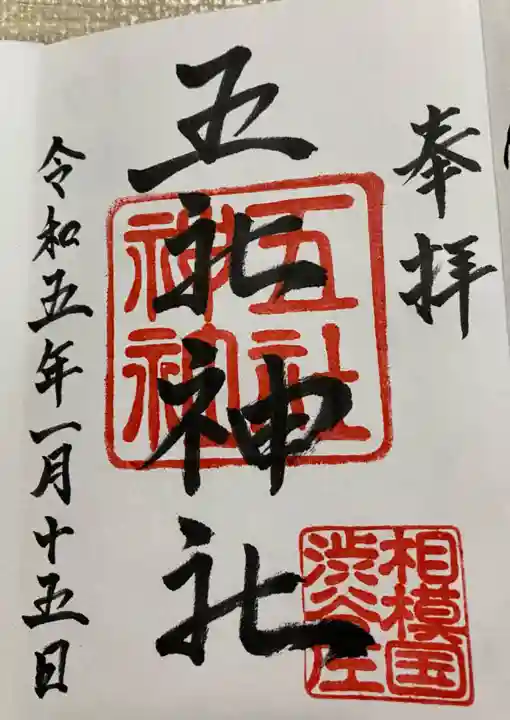 奉拝
五社神社
五社
御神
相模国
渋谷庄
令和五年一月十五日